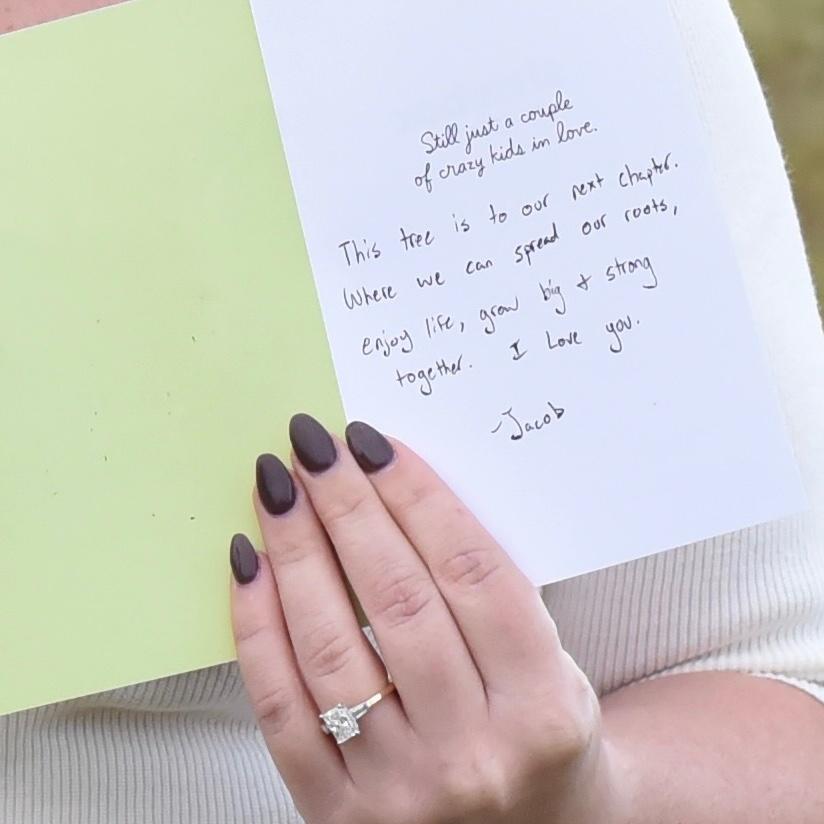 Still just a couple
of crazy kids in love.
This tree is to our next chapter.
Where we can spread our roots,
enjoy life, grow big & strong
together. I Love you.
-Jacob